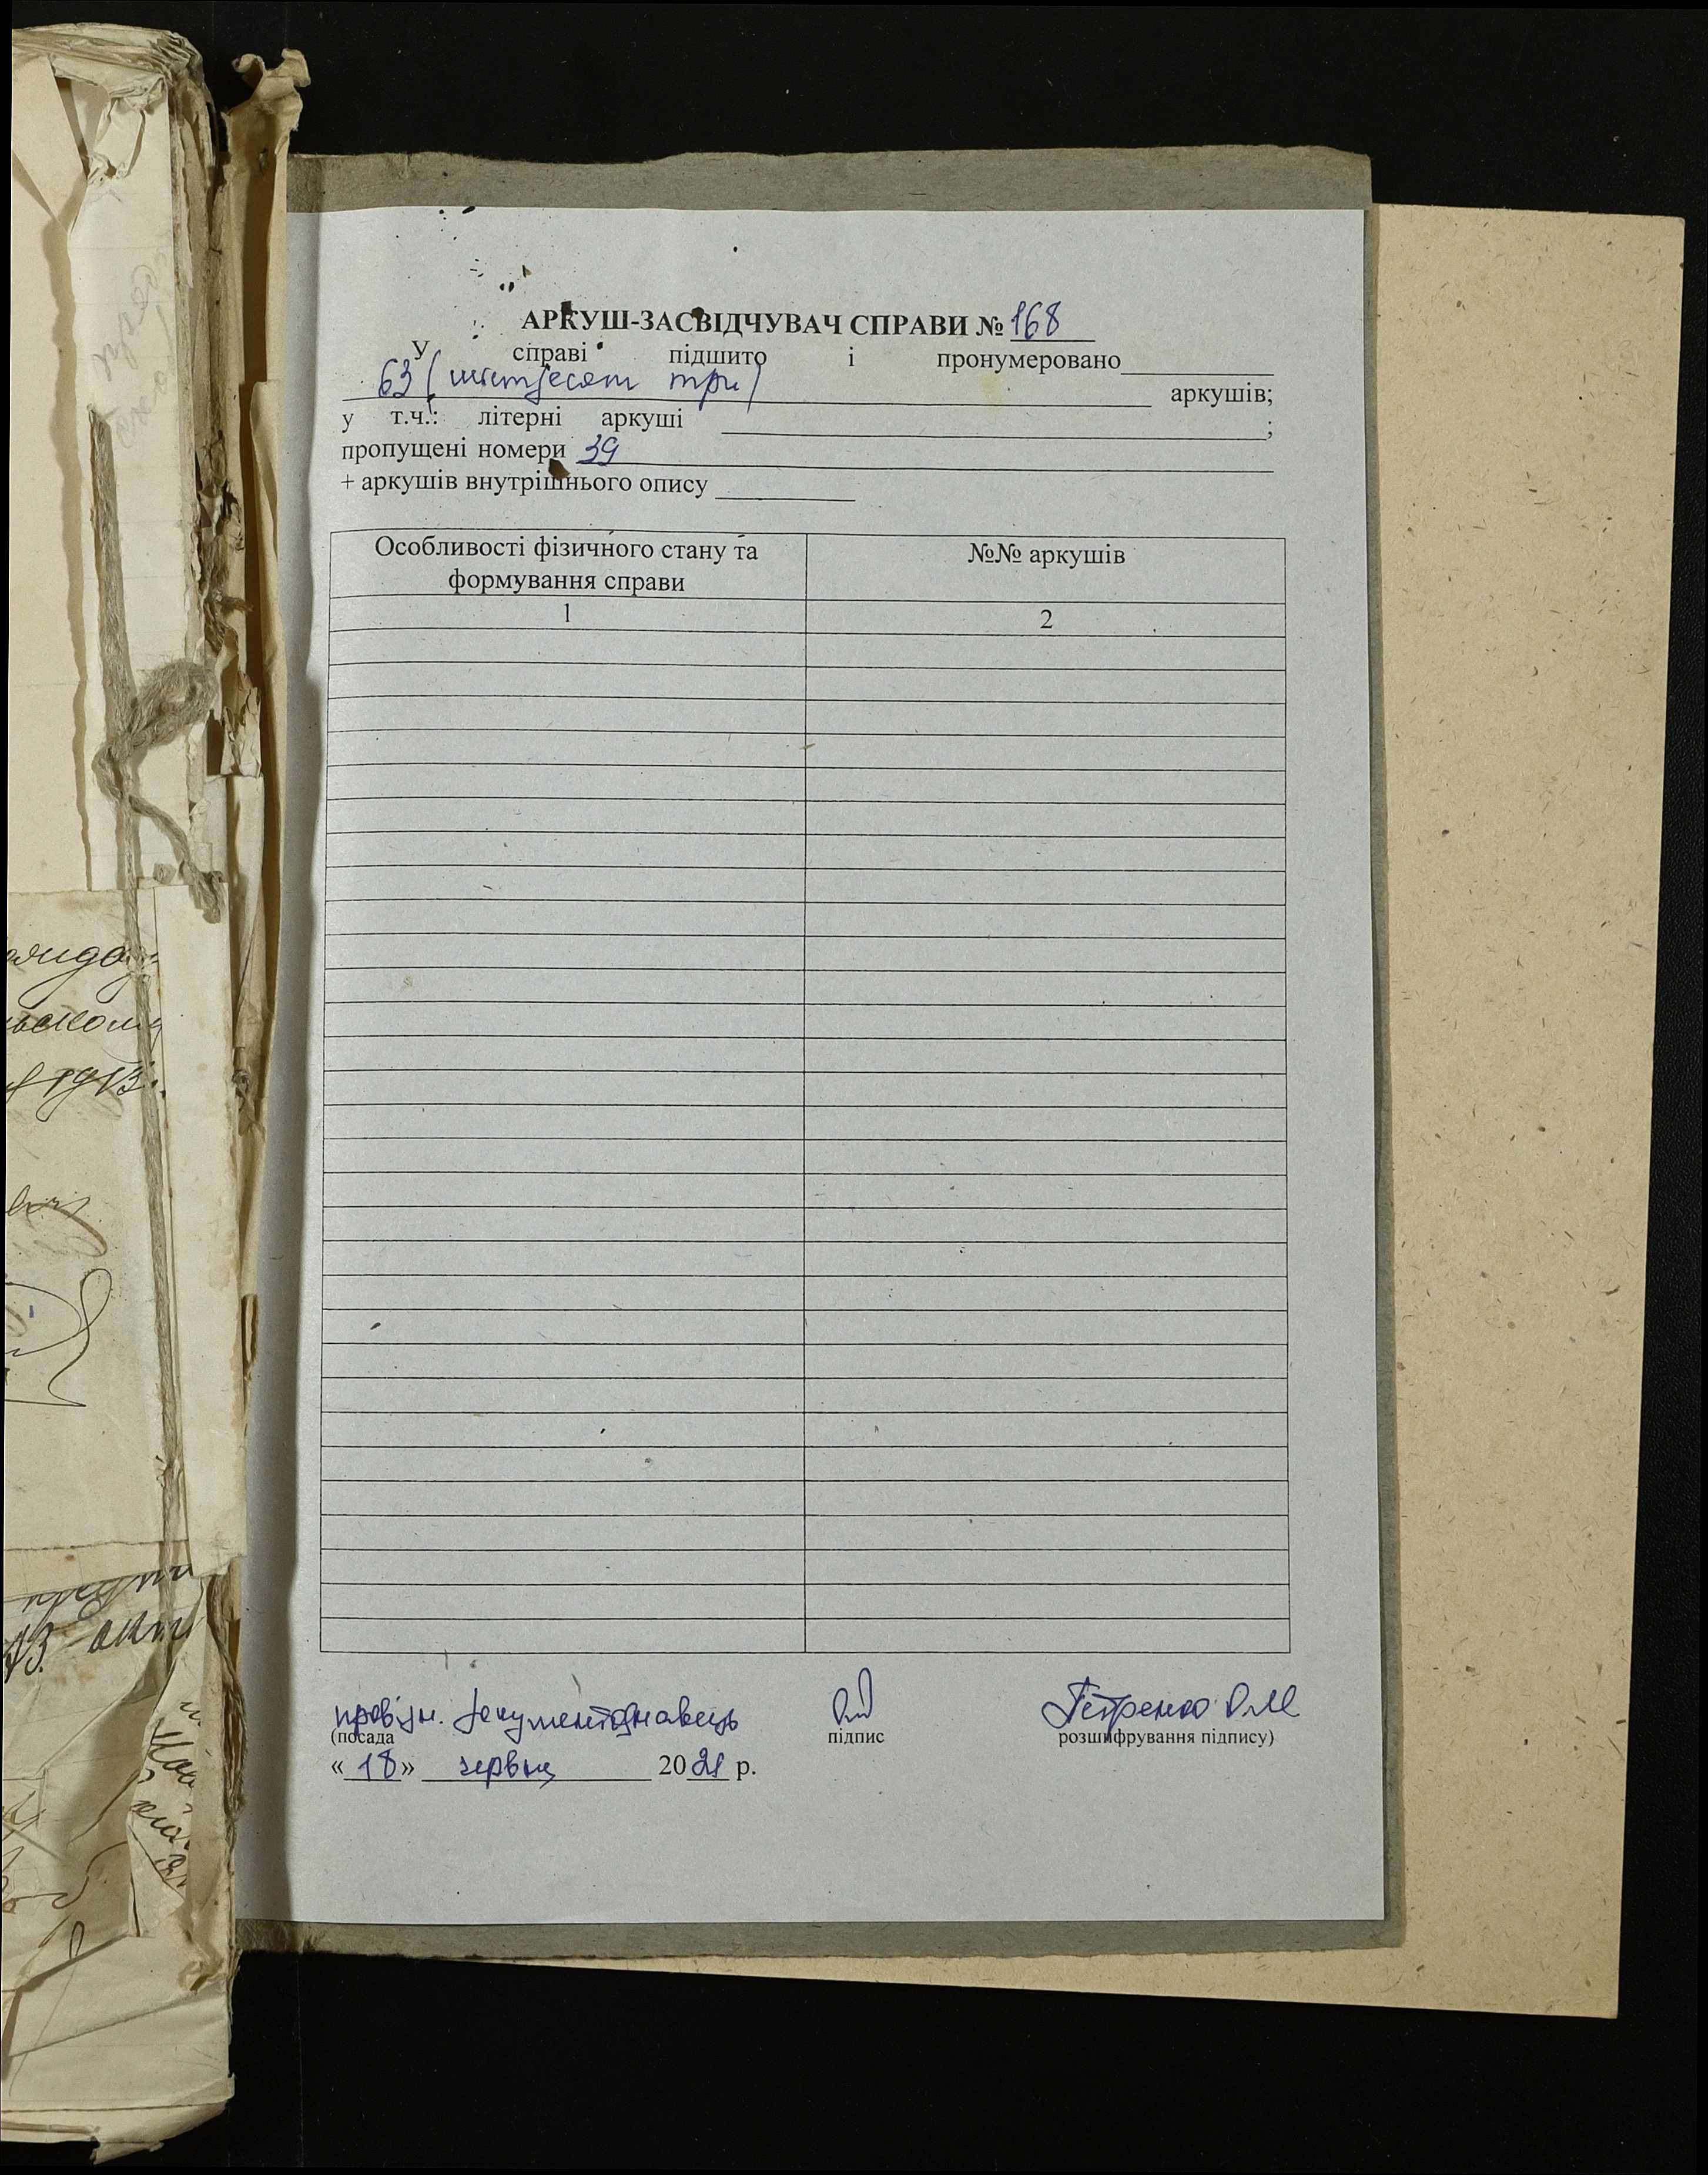 АРКУШ-ЗАСВІДЧУВАЧ СПРАВИ № 168
У справі підшито і пронумеровано
63 (шістдесят три) аркушів;
у т.ч.: літерні аркуші ;
пропущені номери 39
+ аркушів внутрішнього опису
Особливості фізичного стану та формування справи
№№ аркушів
1
2
провідн. документознавець
Петренко О.М
(посада підпис розшифрування підпису)
« 18 » червня 2021 р.
1913.